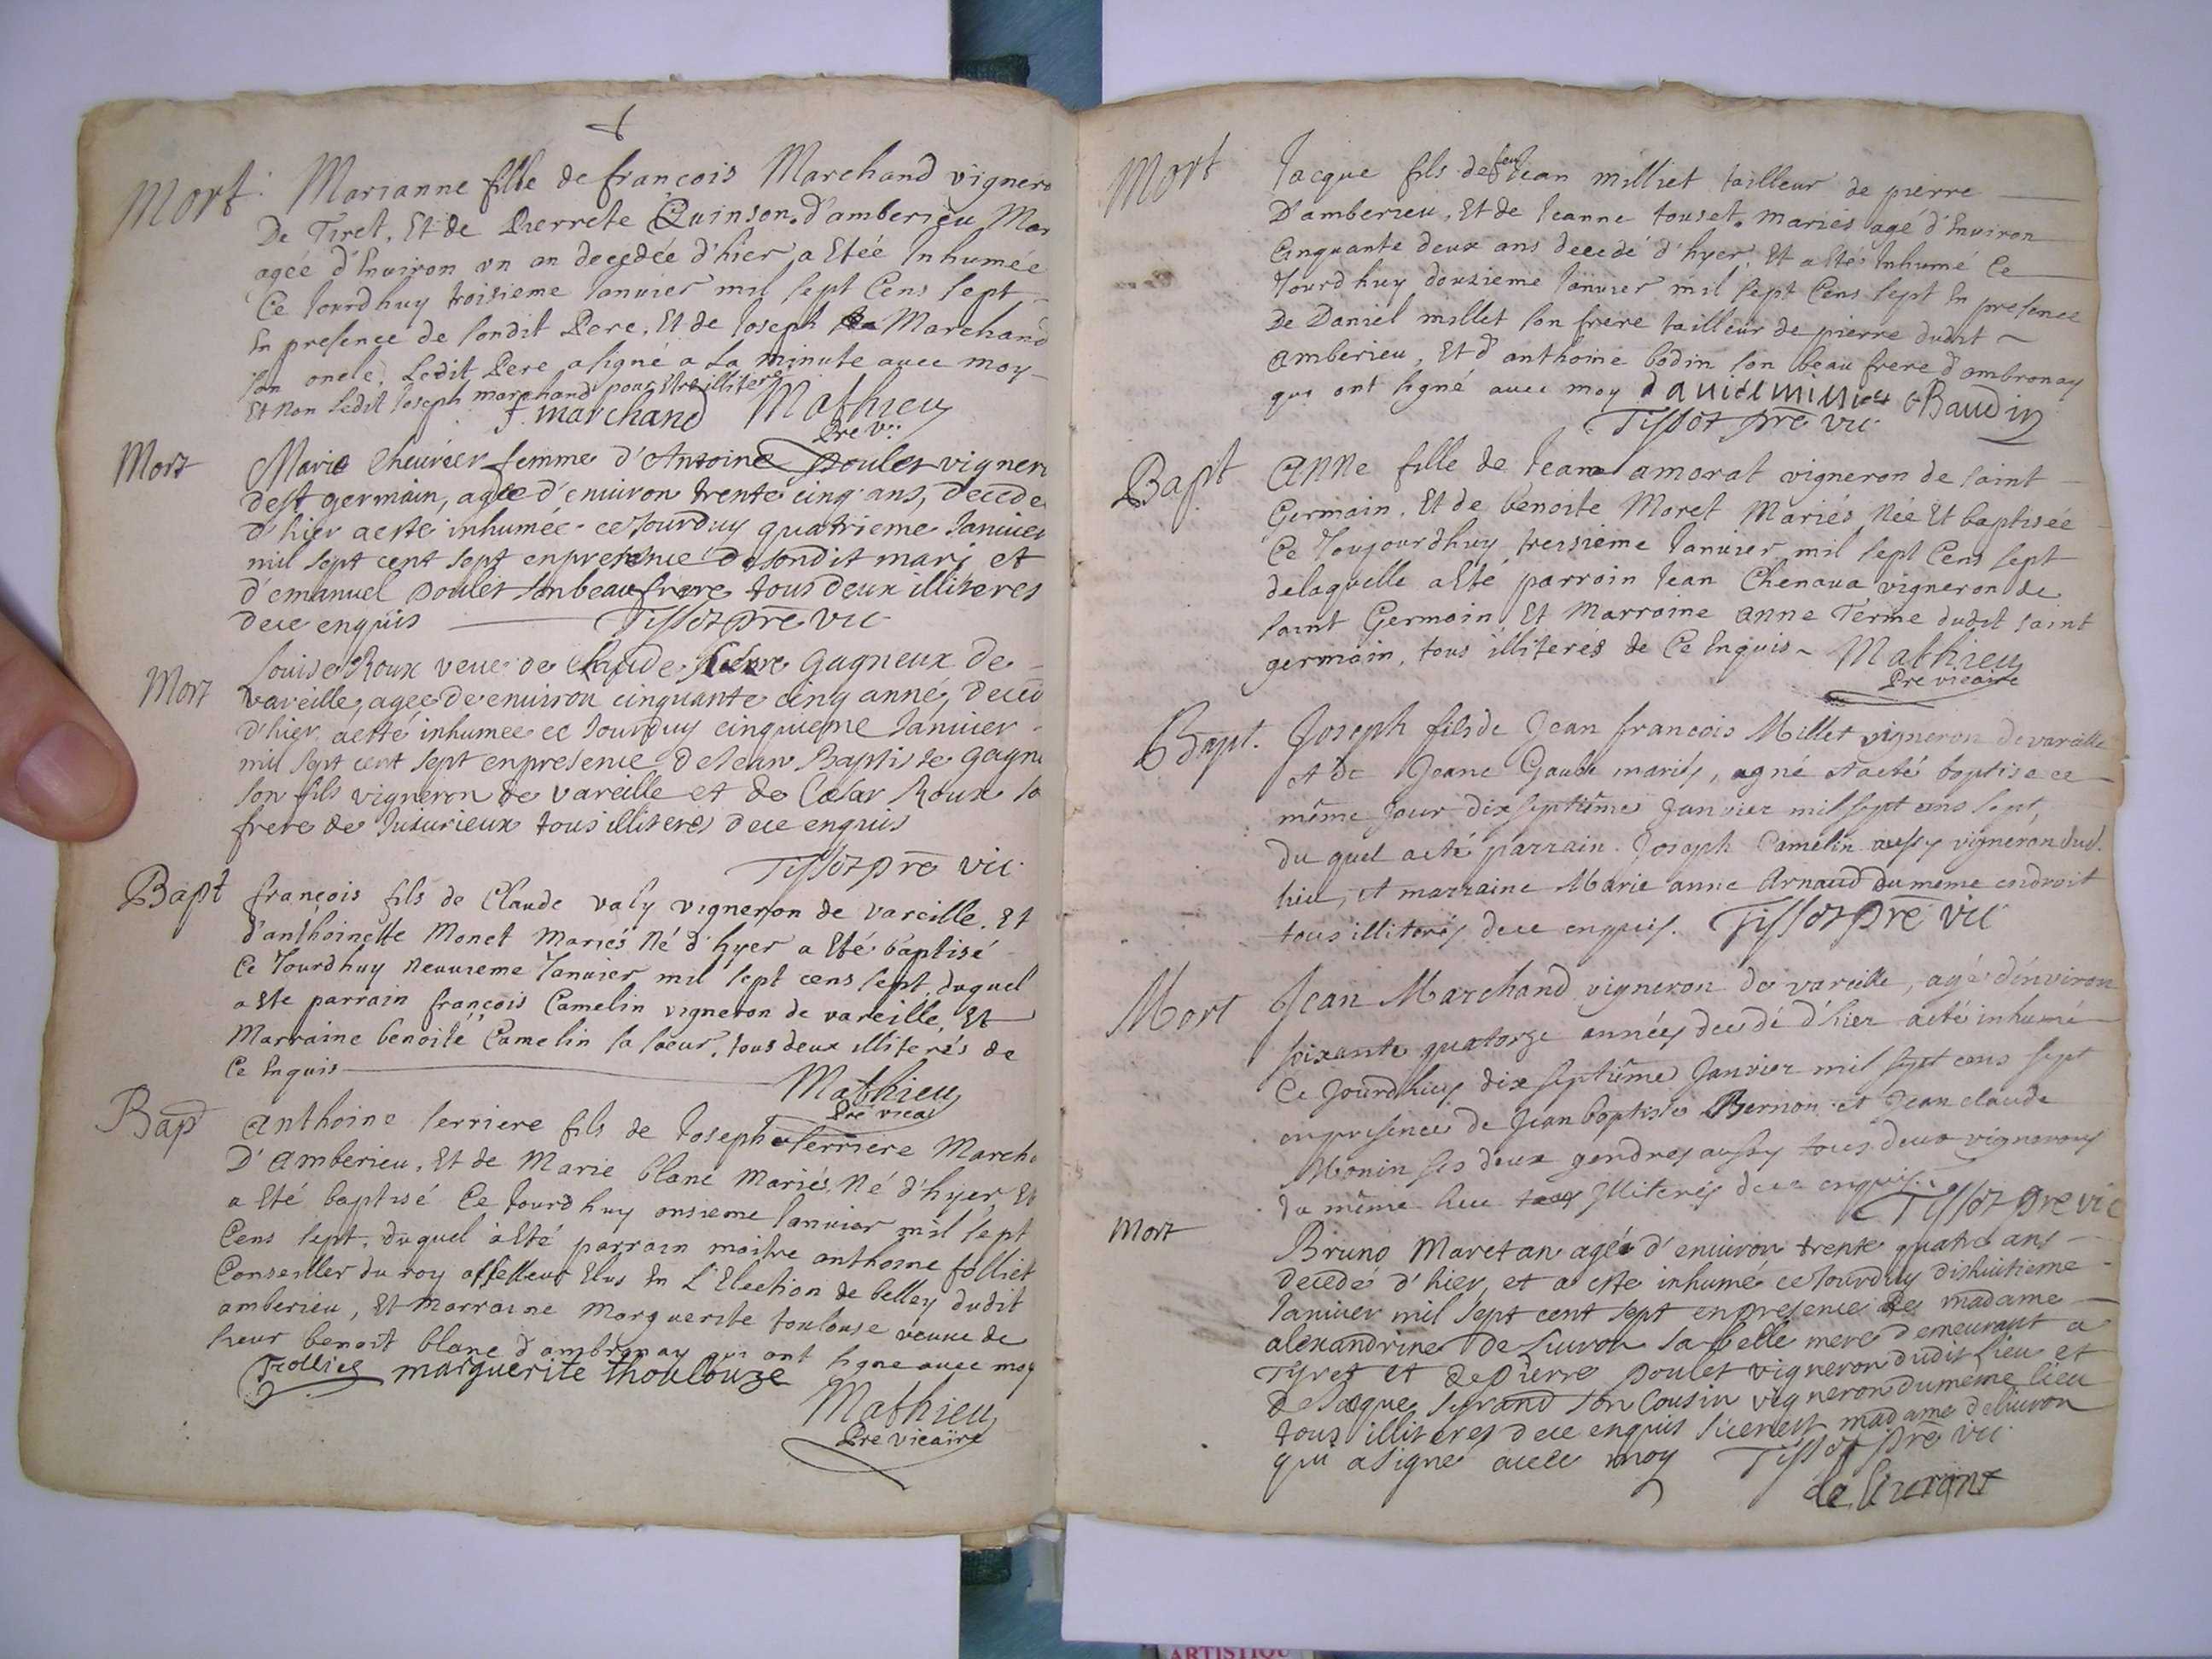 Mort. Marianne fille de francois Marchand vignero
De Tiret, Et de Pierrete Quinson d'amberieu Mar
agée d'Environ un an decedée d'hier, a Etée Inhumée
Ce Jourdhuy troisieme Janvier mil sept Cens sept
En presence de sondit Pere, Et de Joseph Marchand
son oncle, Ledit Pere a signé a la minute avec moy
Et Non Ledit Joseph marchand pour Etre illiteré
f. marchand Mathieu
Pre v:
Mort Marie Cheurier femme d'Antoine poulet vignern
de st germain, agée d'enuiron trente cinq ans, decede
d'hier a esté inhumée ce Jourduy quatrieme Januier
mil sept cent sept en presence de sondit mari et
d'emanuel poulet son beau frere tous deux illiteres
de ce enquis Tissot pre vic
Mort Louise Roux veue de Claude gagneux de
vareille, agee de enuiron cinquante cinq année, deced
d'hier a esté inhumee ce Jourduy cinquieme Januier
mil sept cent sept en presence de Jean Baptiste gagn
son fils vigneron de vareille et de Cesar Roux so
frere de Jujurieux tous illiteres de ce enquis
Tissot pre vic.
Bapt françois fils de Claude valy vigneron de vareille, Et
d'anthoinette Monet Mariés Né d'hyer a Eté baptisé
Ce Jourdhuy neuuieme Januier mil sept cens sept, duquel
a Ete parrain françois Camelin vigneron de vareille, Et
Marraine benoite Camelin sa soeur, tous deux illiterés de
Ce Enquis
Mathieu
Pre vicai
Bap Anthoine serriere fils de Joseph serriere March
D'Amberieu, Et de Marie blanc Mariés Né d'hyer, Et
a Eté baptisé Ce Jourdhuy onsieme Januier mil sept
Cens sept, duquel a Eté parrain maitre anthoine folliet
Conseiller du roy assesseur Elus En L'Election de belley dudit
amberieu, Et Marraine Marguerite toulouse veuue de
sieur benoit blanc d'ambronay qui ont signe auec moy
Folliet marguerite thoulouze
Mathieu
Pre vicaire
Mort Jacque fils de feu Jean milliet tailleur de pierre
D'amberieu, Et de Jeanne touset Mariés agé d'Enuiron
Cinquante deux ans decedé d'hyer, Et a Eté Inhumé Ce
Jourdhuy dousieme Januier mil sept Cens sept En presence
De Daniel millet son frere tailleur de pierre dudit
amberieu, Et d'anthoine bodin son beau frere d'ambronay
qui ont signé auec moy daniel milliet A Baudin
Tissot pre vic
Bapt Anne fille de Jean amorat vigneron de saint
Germain, Et de benoite Moret Mariés Née Et baptisée
Ce Joujourdhuy treisieme Januier mil sept Cens sept
de laquelle a Eté parroin Jean Chenaua vigneron de
saint Germain Et Marraine anne Terme dudit saint
germain, tous illiterés de Ce Enquis Mathieu
Pre vicaire
Bapt. Joseph fils de Jean francois Millet vigneron de vareille
et de Jeane Gaude mariés, agné et a eté baptise ce
même jour dix septiême Janvier mil sept cens sept,
du quel a eté parrain Joseph Camelin aussy vigneron dud.
lieu, et marraine Marie anne Arnaud du même endroit
tous illiterés de ce enquis. Tissot pre vic
Mort Jean Marchand vigneron de vareille, agé d'environ
soixante quatorze années decedé d'hier a eté inhumé
Ce Jourdhuy dix septiême Janvier mil sept cens sept
en presence de Jean baptiste Bernon et Jean claude
Monin ses deux gendres aussy tous deux vignerons
du même lieu illiterés de ce enquis. Tissot pre vic
Mort Bruno Maretan agée d'enuiron trente quatre ans
decedé d'hier, et a esté inhumé ce Jourduy dishuitieme
Januier mil sept cent sept en presence de madame
alexandrine de Liuron sa belle mere demeurant a
Tyret et de pierre poulet vigneron dudit lieu et
de Jaque son Cousin vigneron du meme lieu
tous illiteres de ce enquis si ce n'est madame de liuron
qui a signé auec moy Tissot pre vic
de liuront
ARTISTIQU